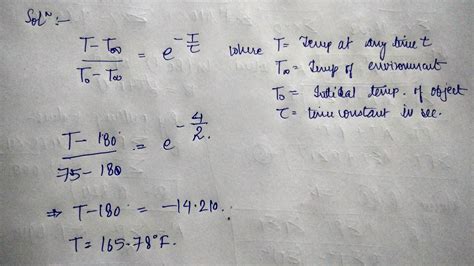 Solⁿ :-
T - T∞ / T₀ - T∞ = e^(-t/τ) where T = Temp at any time t
T∞ = Temp of environment
T₀ = Initial temp. of object
τ = time constant in sec.
T - 180° / 75 - 180 = e^(-4/2.)
⇒ T - 180° = -14.210.
T = 165.78°F.